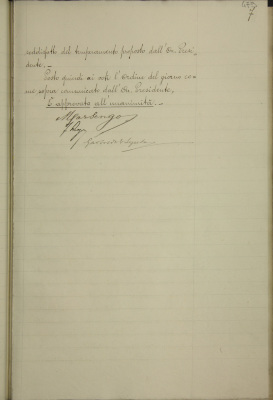 7
soddisfatto del temperamento proposto dall'On. Presi_
dente._
Posto quindi ai voti l'Ordine del giorno co=
me sopra comunicato dall'On. Presidente_
E' approvato all'unanimità._